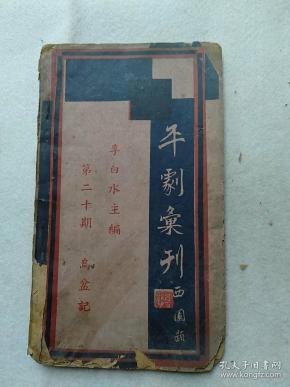 平劇彙刊
西園題
李白水主編
第二十期 烏盆記
孔夫子旧书网